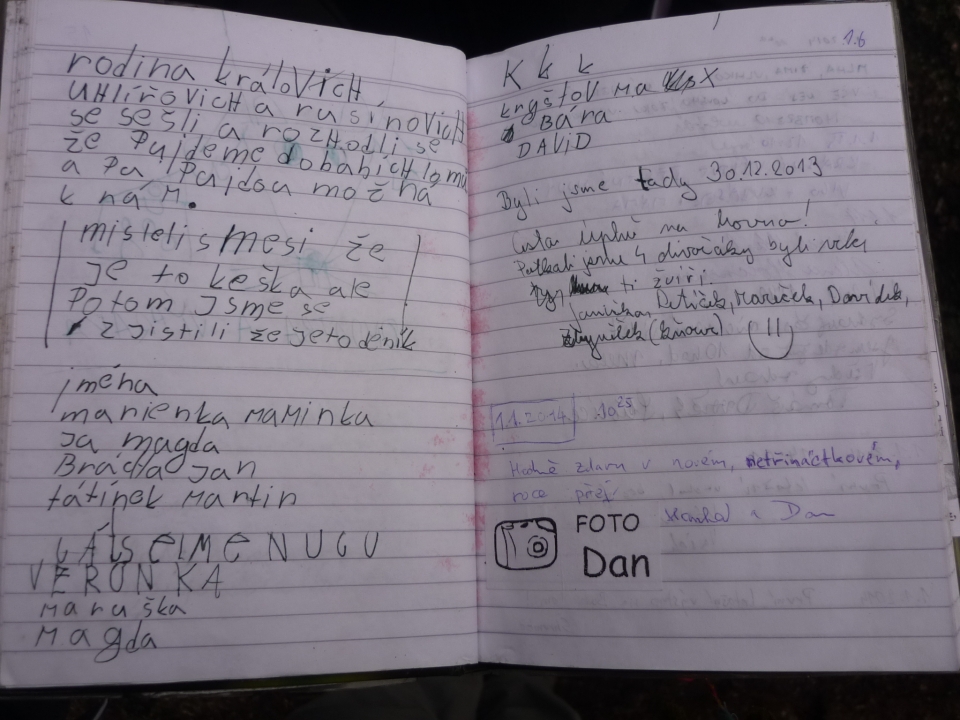 rodina králových,
UHLÍŘOVICH a rusinovich
se sešli a rozhodli se
že Pujdeme dobabích lomů
a pa Pajdou možná
k ná M.
misleli s mesi že
je to keška ale
Potom jsme se
zjistili že jeto deník
jména
marienka maminka
ja magda
Brácha Jan
tátínek Martin
VERUNKA
Maruška
Magda
1.6
K k k
kryštov Ma
BÁRA
DAViD
Byli jsme tady 30.12.2013
Cesta úplně na hovno!
Potkali jsme 4 divočáky byli velk
ti zvíři.
Petříček, Mareček, Davídek,
(křoví)
1.1.2014 10 25
Hodně zdaru v novém, netřináctkovém,
roce přejí
a Dan
FOTO
Dan